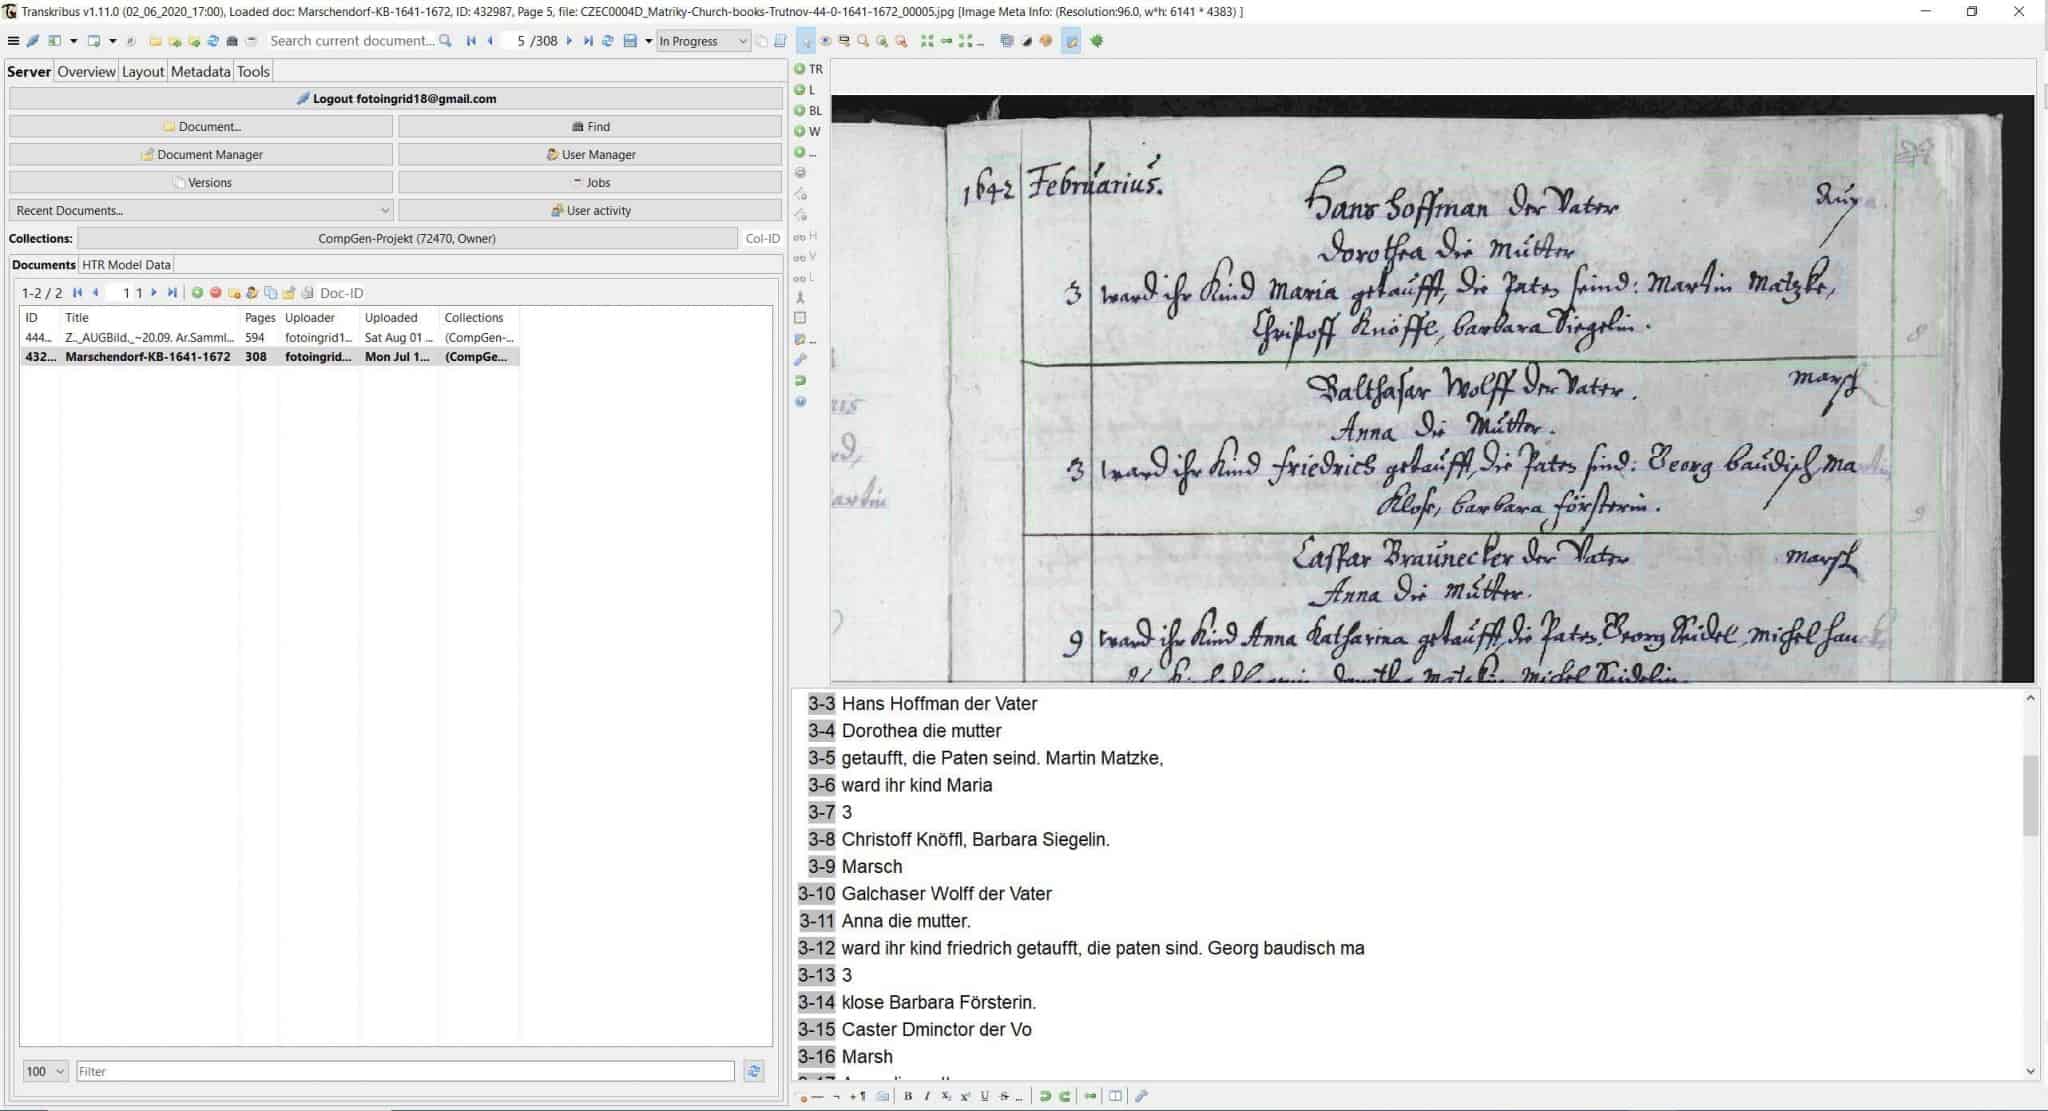 Transkribus v1.11.0 (02_06_2020_17:00), Loaded doc: Marschendorf-KB-1641-1672, ID: 432987, Page 5, file: CZEC0004D_Matriky-Church-books-Trutnov-44-0-1641-1672_00005.jpg [Image Meta Info: (Resolution:96.0, w*h: 6141 * 4383) ]
Search current document... 5 /308 In Progress
Server Overview Layout Metadata Tools
Logout fotoingrid18@gmail.com
Document... Find
Document Manager User Manager
Versions Jobs
Recent Documents... User activity
Collections: CompGen-Projekt (72470, Owner) Col-ID
Documents HTR Model Data
1-2 / 2 1 1 Doc-ID
ID Title Pages Uploader Uploaded Collections
444... Z._AUGBild._~20.09. Ar.Samml... 594 fotoingrid1... Sat Aug 01 ... (CompGen-...
432... Marschendorf-KB-1641-1672 308 fotoingrid... Mon Jul 1... (CompGe...
100 Filter
TR
L
BL
W
...
H
V
L
...
1642 Februarius.
Hans Hoffman der Vater
Dorothea die Mutter
3 ward ihr Kind Maria getaufft, die Paten seind: Martin Matzke,
Christoff Knöffl, barbara Siegelin.
8
Balthasar Wolff der Vater. Marsch
Anna die Mutter.
3 ward ihr Kind friedrich getaufft, die Paten sind: Georg baudisch, Martin
Klose, barbara försterin.
9
Caspar Braunecker der Vater Marsch
Anna die Mutter.
9 ward ihr Kind Anna Katharina getaufft, die Paten Georg Seidel, Michel
3-3 Hans Hoffman der Vater
3-4 Dorothea die mutter
3-5 getaufft, die Paten seind. Martin Matzke,
3-6 ward ihr kind Maria
3-7 3
3-8 Christoff Knöffl, Barbara Siegelin.
3-9 Marsch
3-10 Galchaser Wolff der Vater
3-11 Anna die mutter.
3-12 ward ihr kind friedrich getaufft, die paten sind. Georg baudisch ma
3-13 3
3-14 klose Barbara Försterin.
3-15 Caster Dminctor der Vo
3-16 Marsh
B I X₂ X² U S ...